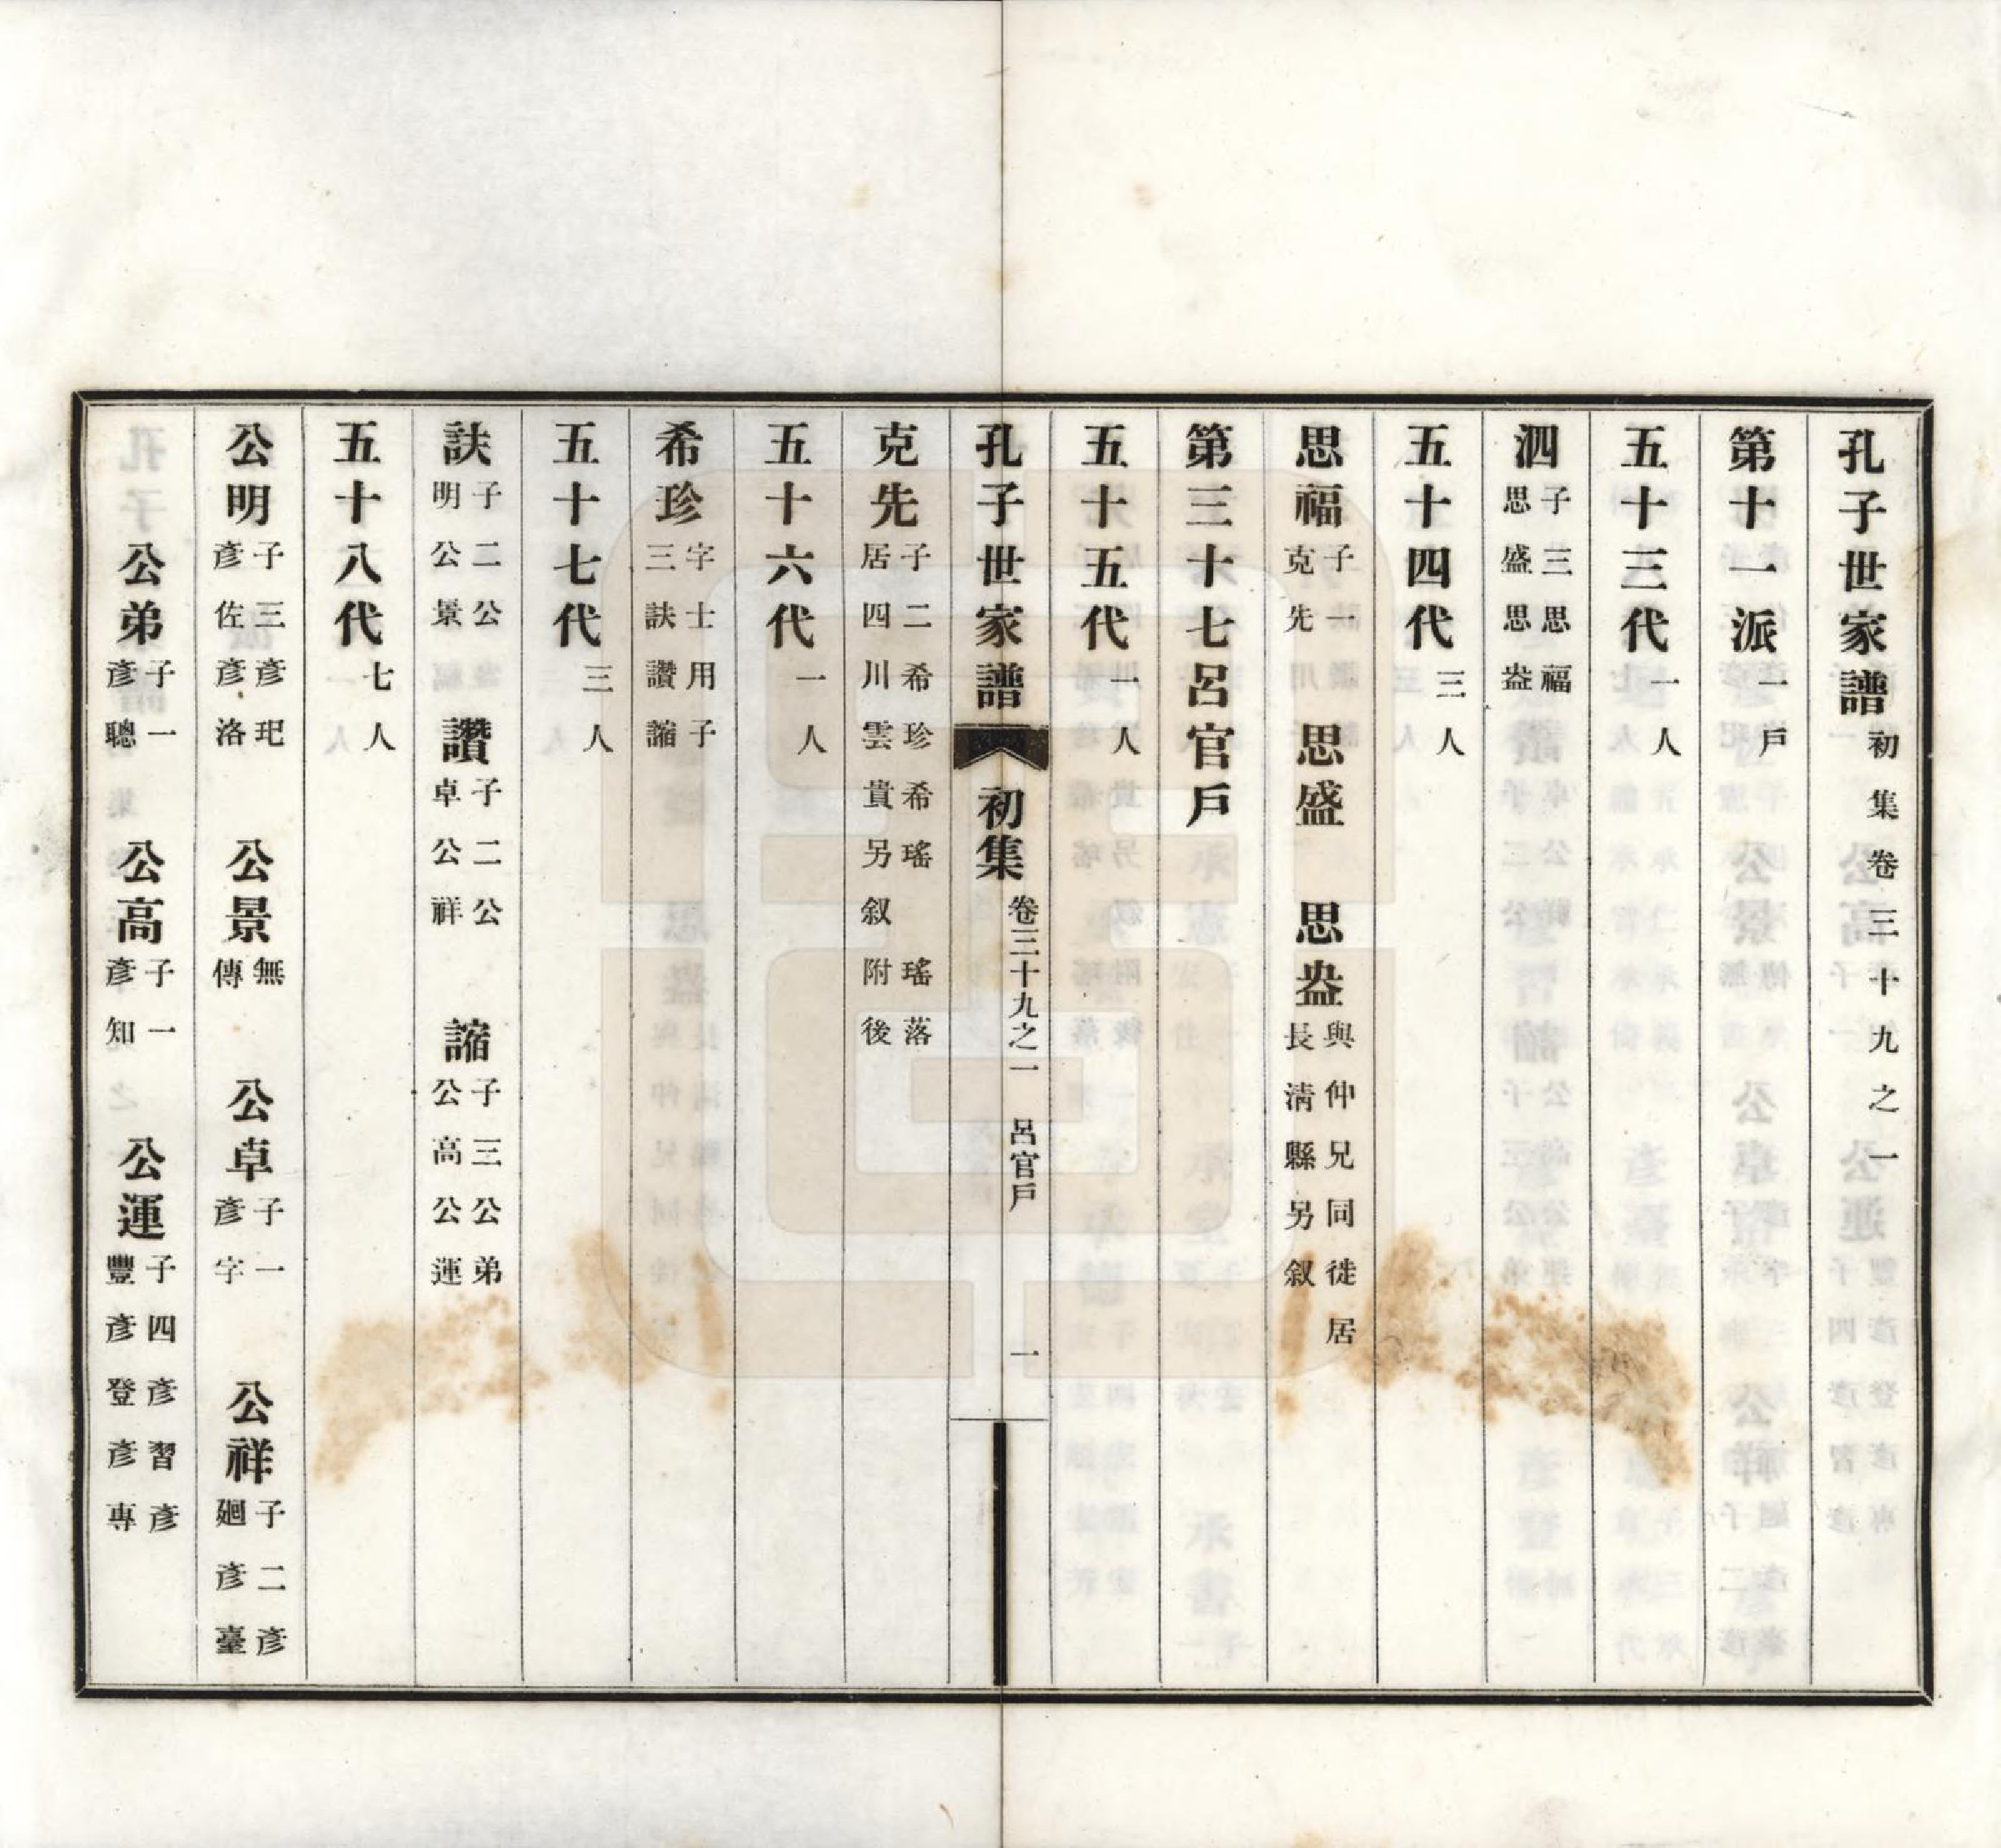 孔子世家譜初集卷三十九之一
第十一派一戶
五十三代一人
泗子三思福思盛思㿽
五十四代三人
思福子一克先 思盛 思㿽與仲兄同徙居長淸縣另叙
第三十七呂官戶
五十五代一人
孔子世家譜 初集 卷三十九之一 呂官戶 一
克先子二希珍希瑤 瑤落居四川雲貴另叙附後
五十六代一人
希珍字士用子三訣讚謫
五十七代三人
訣子二公明公景 讚子二公卓公祥 子三公弟公高公運
五十八代七人
公明子三彥玘彥佐彥洛 公景無傳 公卓子一彥字 公祥子二彥廻彥臺
公弟子一彥聰 公高子一彥知 公運子四彥習彥豐彥登彥專